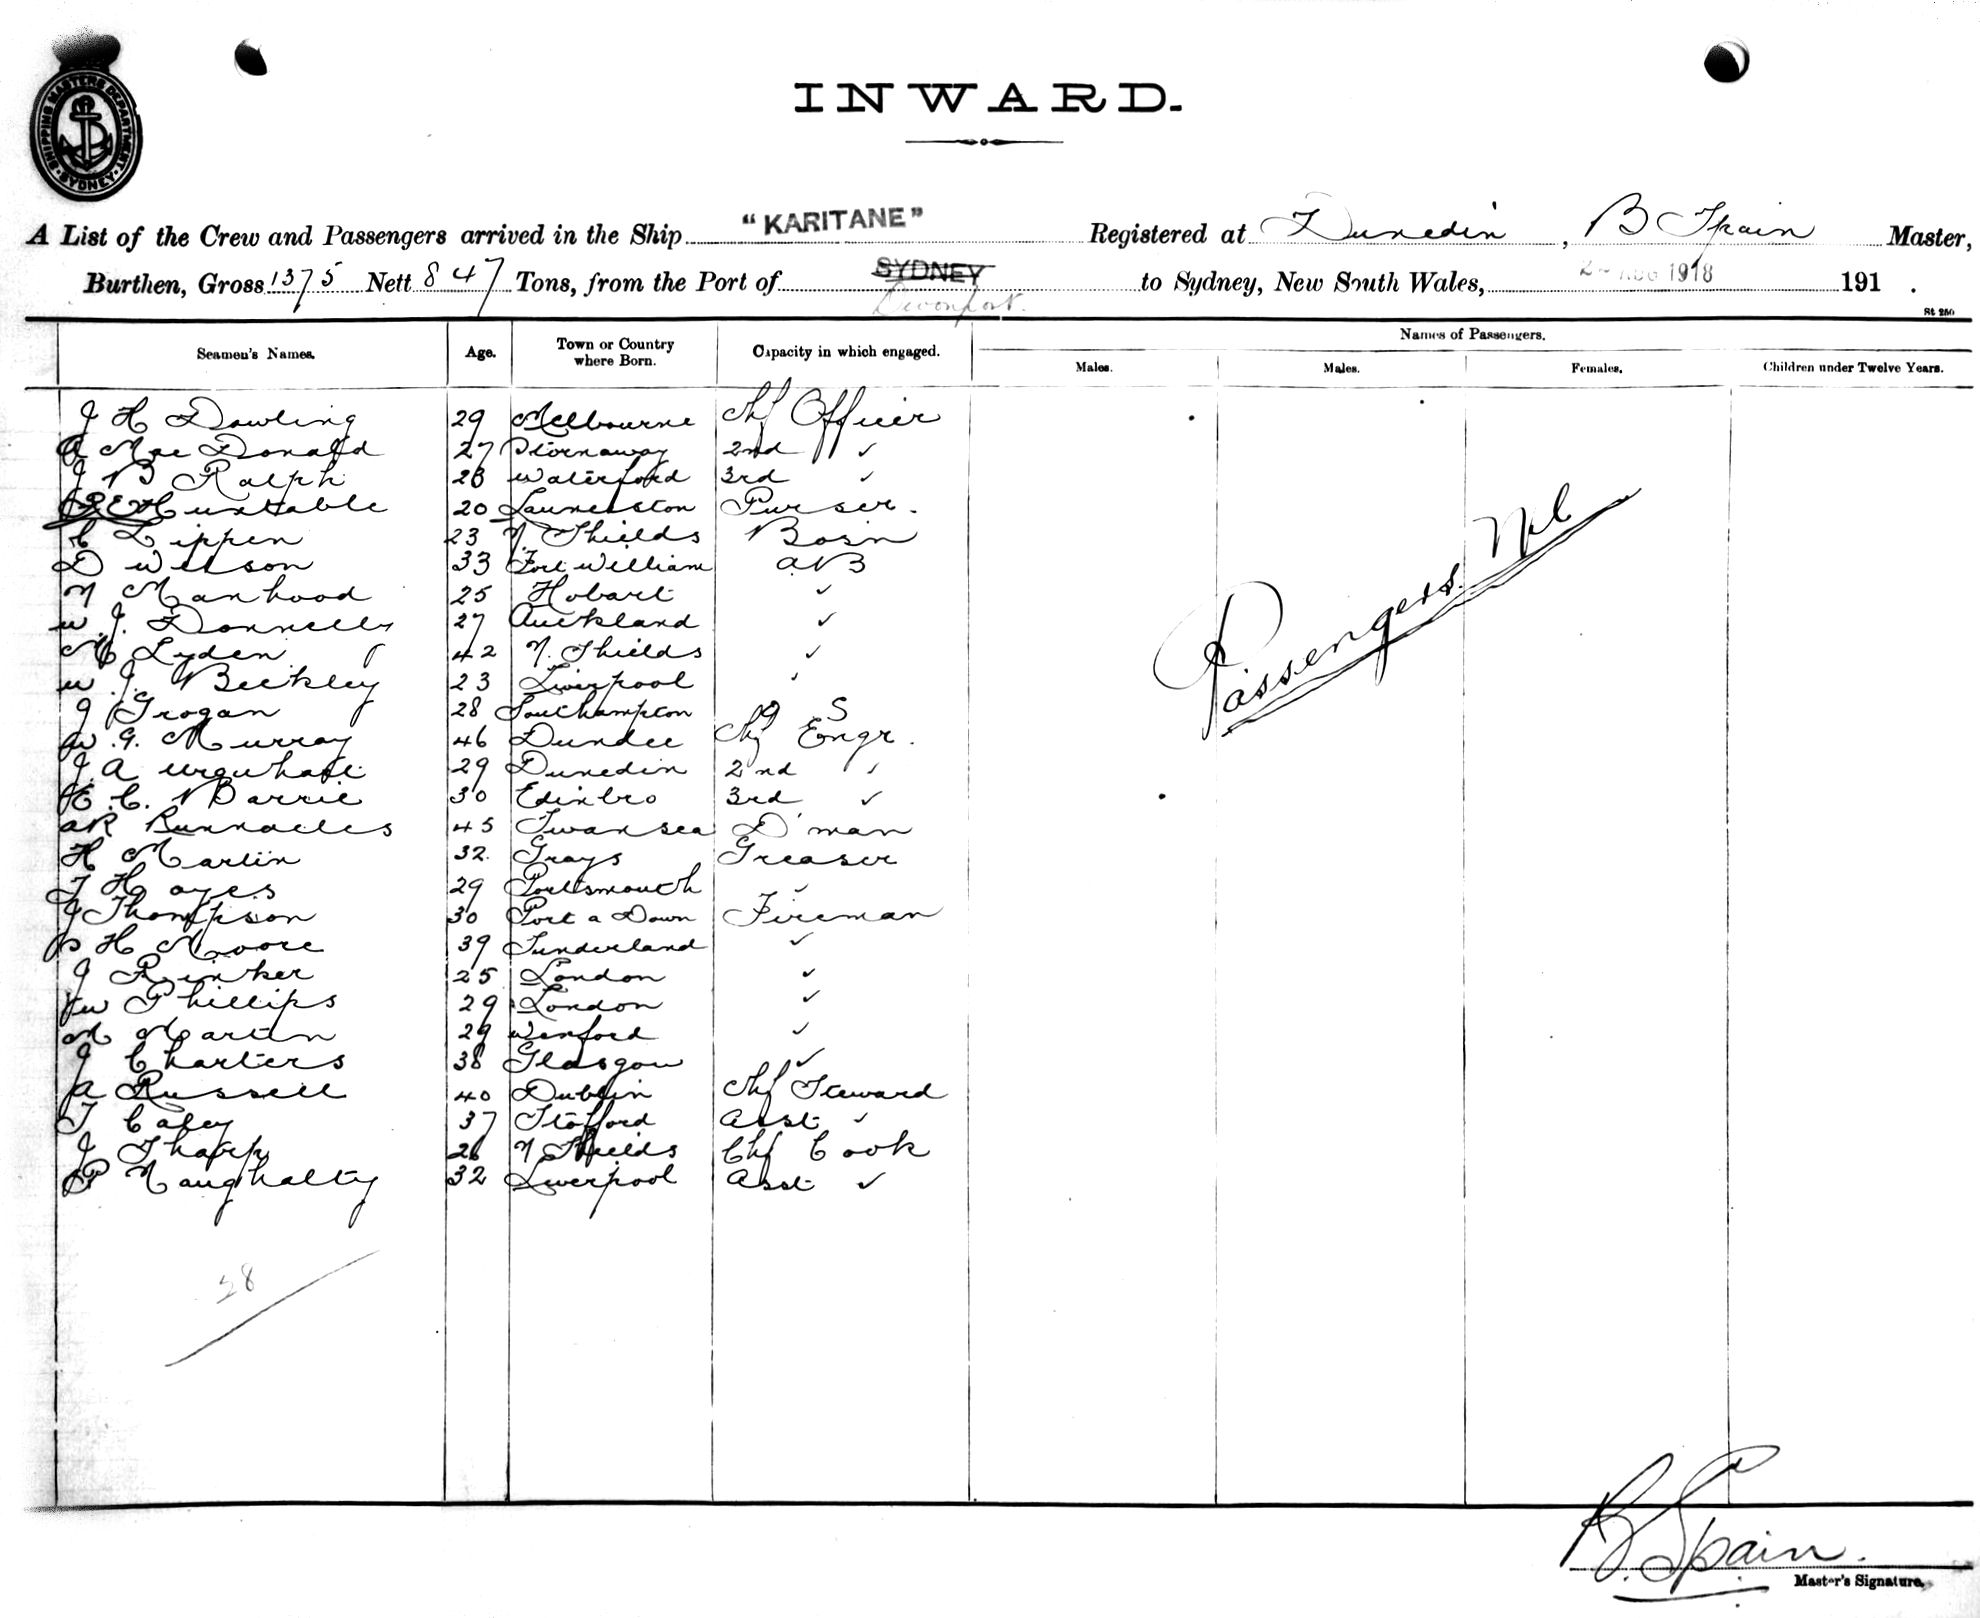 SHIPPING MASTERS DEPARTMENT SYDNEY
INWARD.
A List of the Crew and Passengers arrived in the Ship "KARITANE" Registered at Dunedin, B Spain Master,
Burthen, Gross 1375 Nett 847 Tons, from the Port of SYDNEY Devonport. to Sydney, New South Wales, AUG 1918 191 .
St 250
Seamen's Names. Age. Town or Country where Born. Capacity in which engaged. Names of Passengers.
Males. Males. Females. Children under Twelve Years.
J H Dowling 29 Melbourne Chf Officer
A MacDonald 27 Stornaway 2nd ✓
J B Ralph 28 Waterford 3rd ✓
R E Huxtable 20 Launceston Purser.
C Lippen 23 N Shields Bosn
D Wilson 33 Fort William AB
N Manhood 25 Hobart ✓
W J. Donnelly 27 Auckland ✓
M Lyden 42 N. Shields ✓
W. J. Beckley 23 Liverpool ✓
J Grogan 28 Southampton O S
W. G. Murray 46 Dundee Chf Engr.
J. A Urquhart 29 Dunedin 2nd ✓
H. C. Barrie 30 Edinbro 3rd ✓
A R 45 Swansea D'man
H Martin 32. Grays Greaser
T Hayes 29 Portsmouth ✓
J Thompson 30 Port a Down Fireman
H Moore 39 Sunderland ✓
J Rinker 25 London ✓
W Phillips 29 London ✓
M Martin 29 Wexford ✓
J Charters 38 Glasgow ✓
A Russell 40 Dublin Chf Steward
T Caley 37 Stofford Asst ✓
J Tharp 26 N Shields Chf Cook
P Naughalty 32 Liverpool Asst ✓
Passengers Nil
28
B. Spain.
Master's Signature.